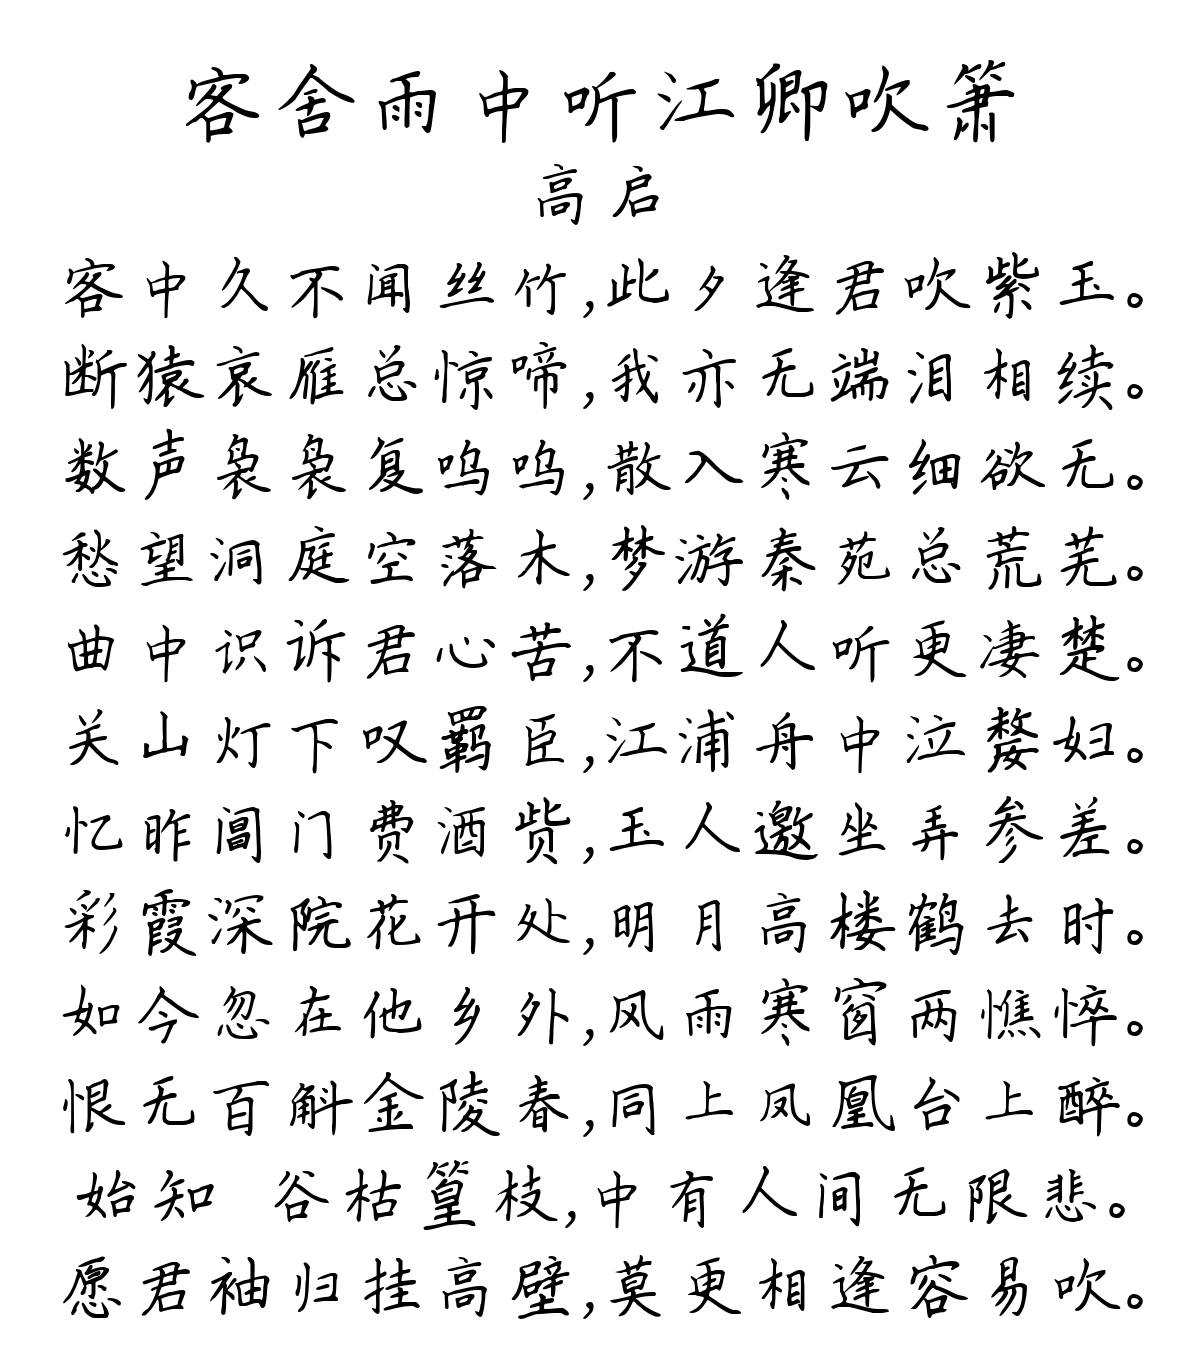 客舍雨中听江卿吹箫
高启
客中久不闻丝竹,此夕逢君吹紫玉。
断猿哀雁总惊啼,我亦无端泪相续。
数声袅袅复呜呜,散入寒云细欲无。
愁望洞庭空落木,梦游秦苑总荒芜。
曲中识诉君心苦,不道人听更凄楚。
关山灯下叹羁臣,江浦舟中泣嫠妇。
忆昨阊门费酒赀,玉人邀坐弄参差。
彩霞深院花开处,明月高楼鹤去时。
如今忽在他乡外,风雨寒窗两憔悴。
恨无百斛金陵春,同上凤凰台上醉。
始知 谷枯篁枝,中有人间无限悲。
愿君袖归挂高壁,莫更相逢容易吹。